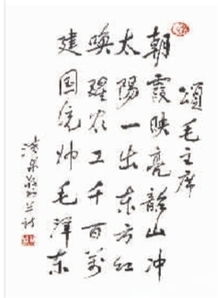 頌毛主席
朝霞映亮韶山冲
太阳一出东方红
唤醒农工千百万
建国统帅毛泽东